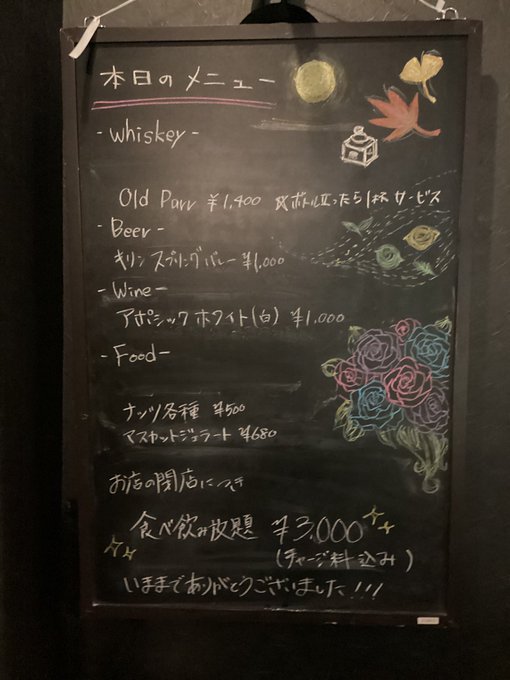 本日のメニュー
- Whiskey -
Old Parr ¥1,400 ※ボトル立ったら1杯サービス
- Beer -
キリン スプリングバレー ¥1,000
- Wine -
アポシック ホワイト(白) ¥1,000
- Food -
ナッツ各種 ¥500
マスカットジェラート ¥680
お店の閉店につき
食べ飲み放題 ¥3,000
(チャージ料込み)
いままでありがとうございました!!!